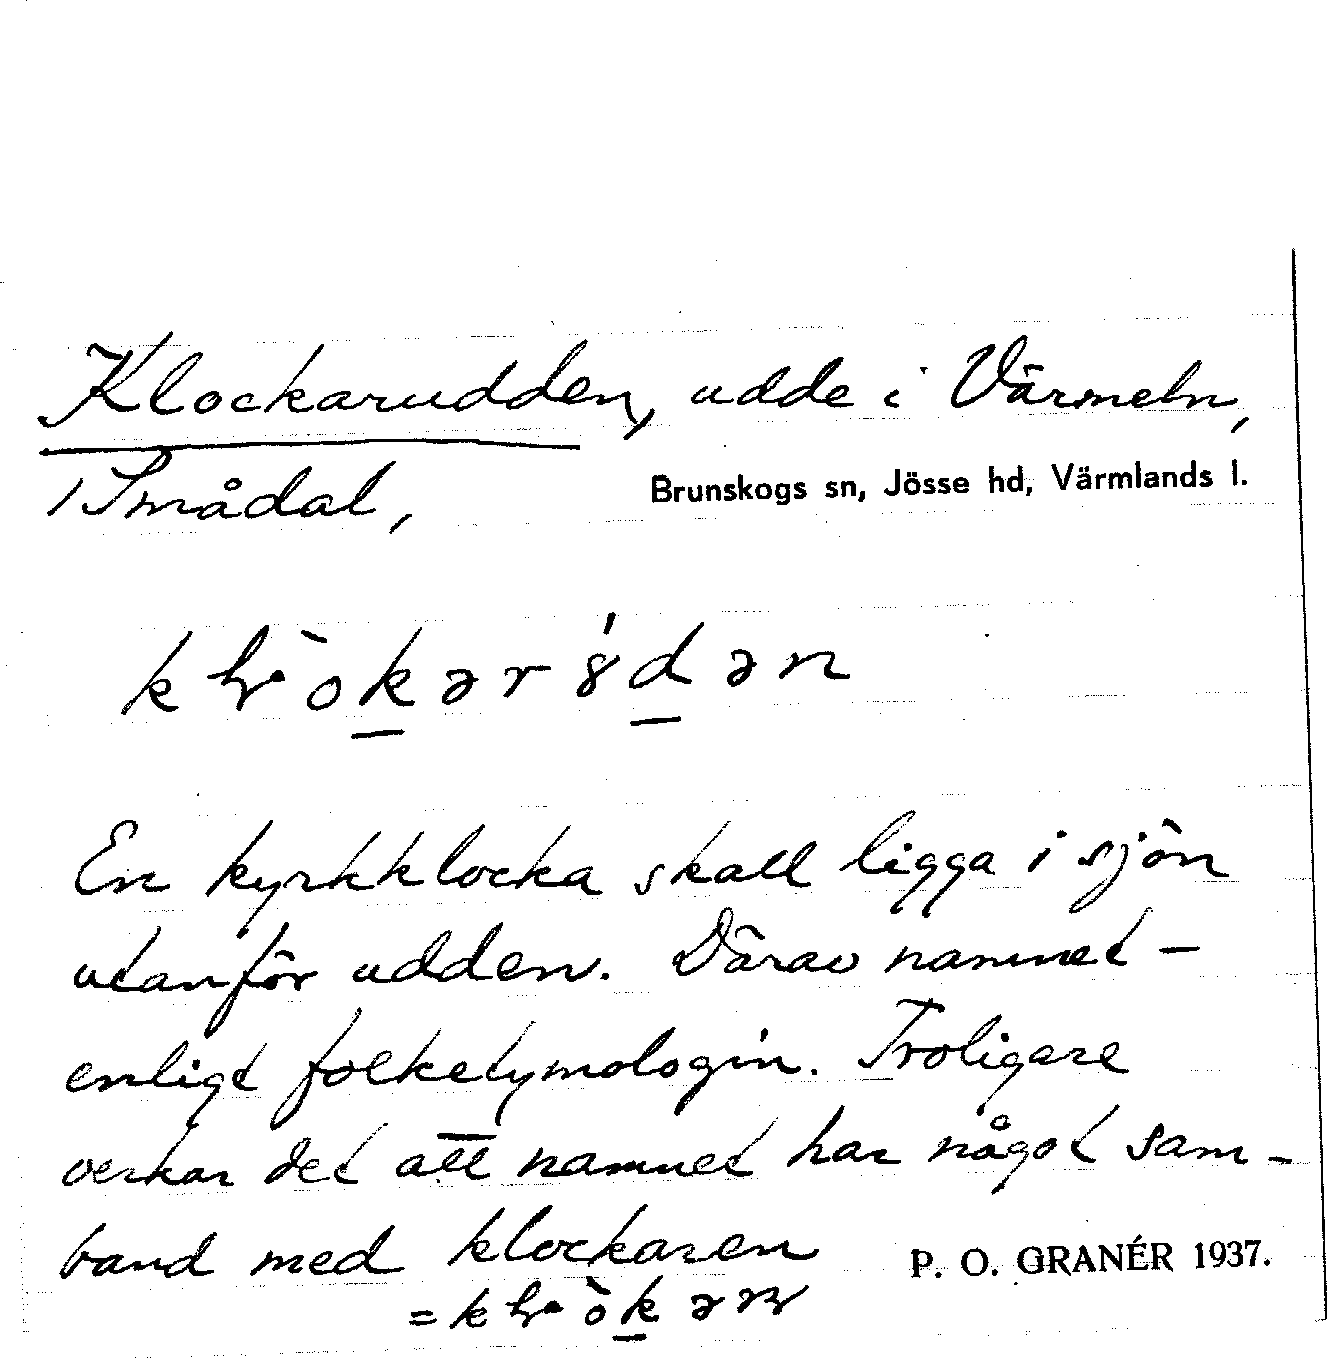 Klockarudden, udde i Värmeln,
i Smådal,
Brunskogs sn, Jösse hd, Värmlands l.
En kyrkklocka skall ligga i sjön
utanför udden. Därav namnet –
enligt folketymologin. Troligare
verkar det att namnet har något sam-
band med klockaren
P. O. GRANÉR 1937.